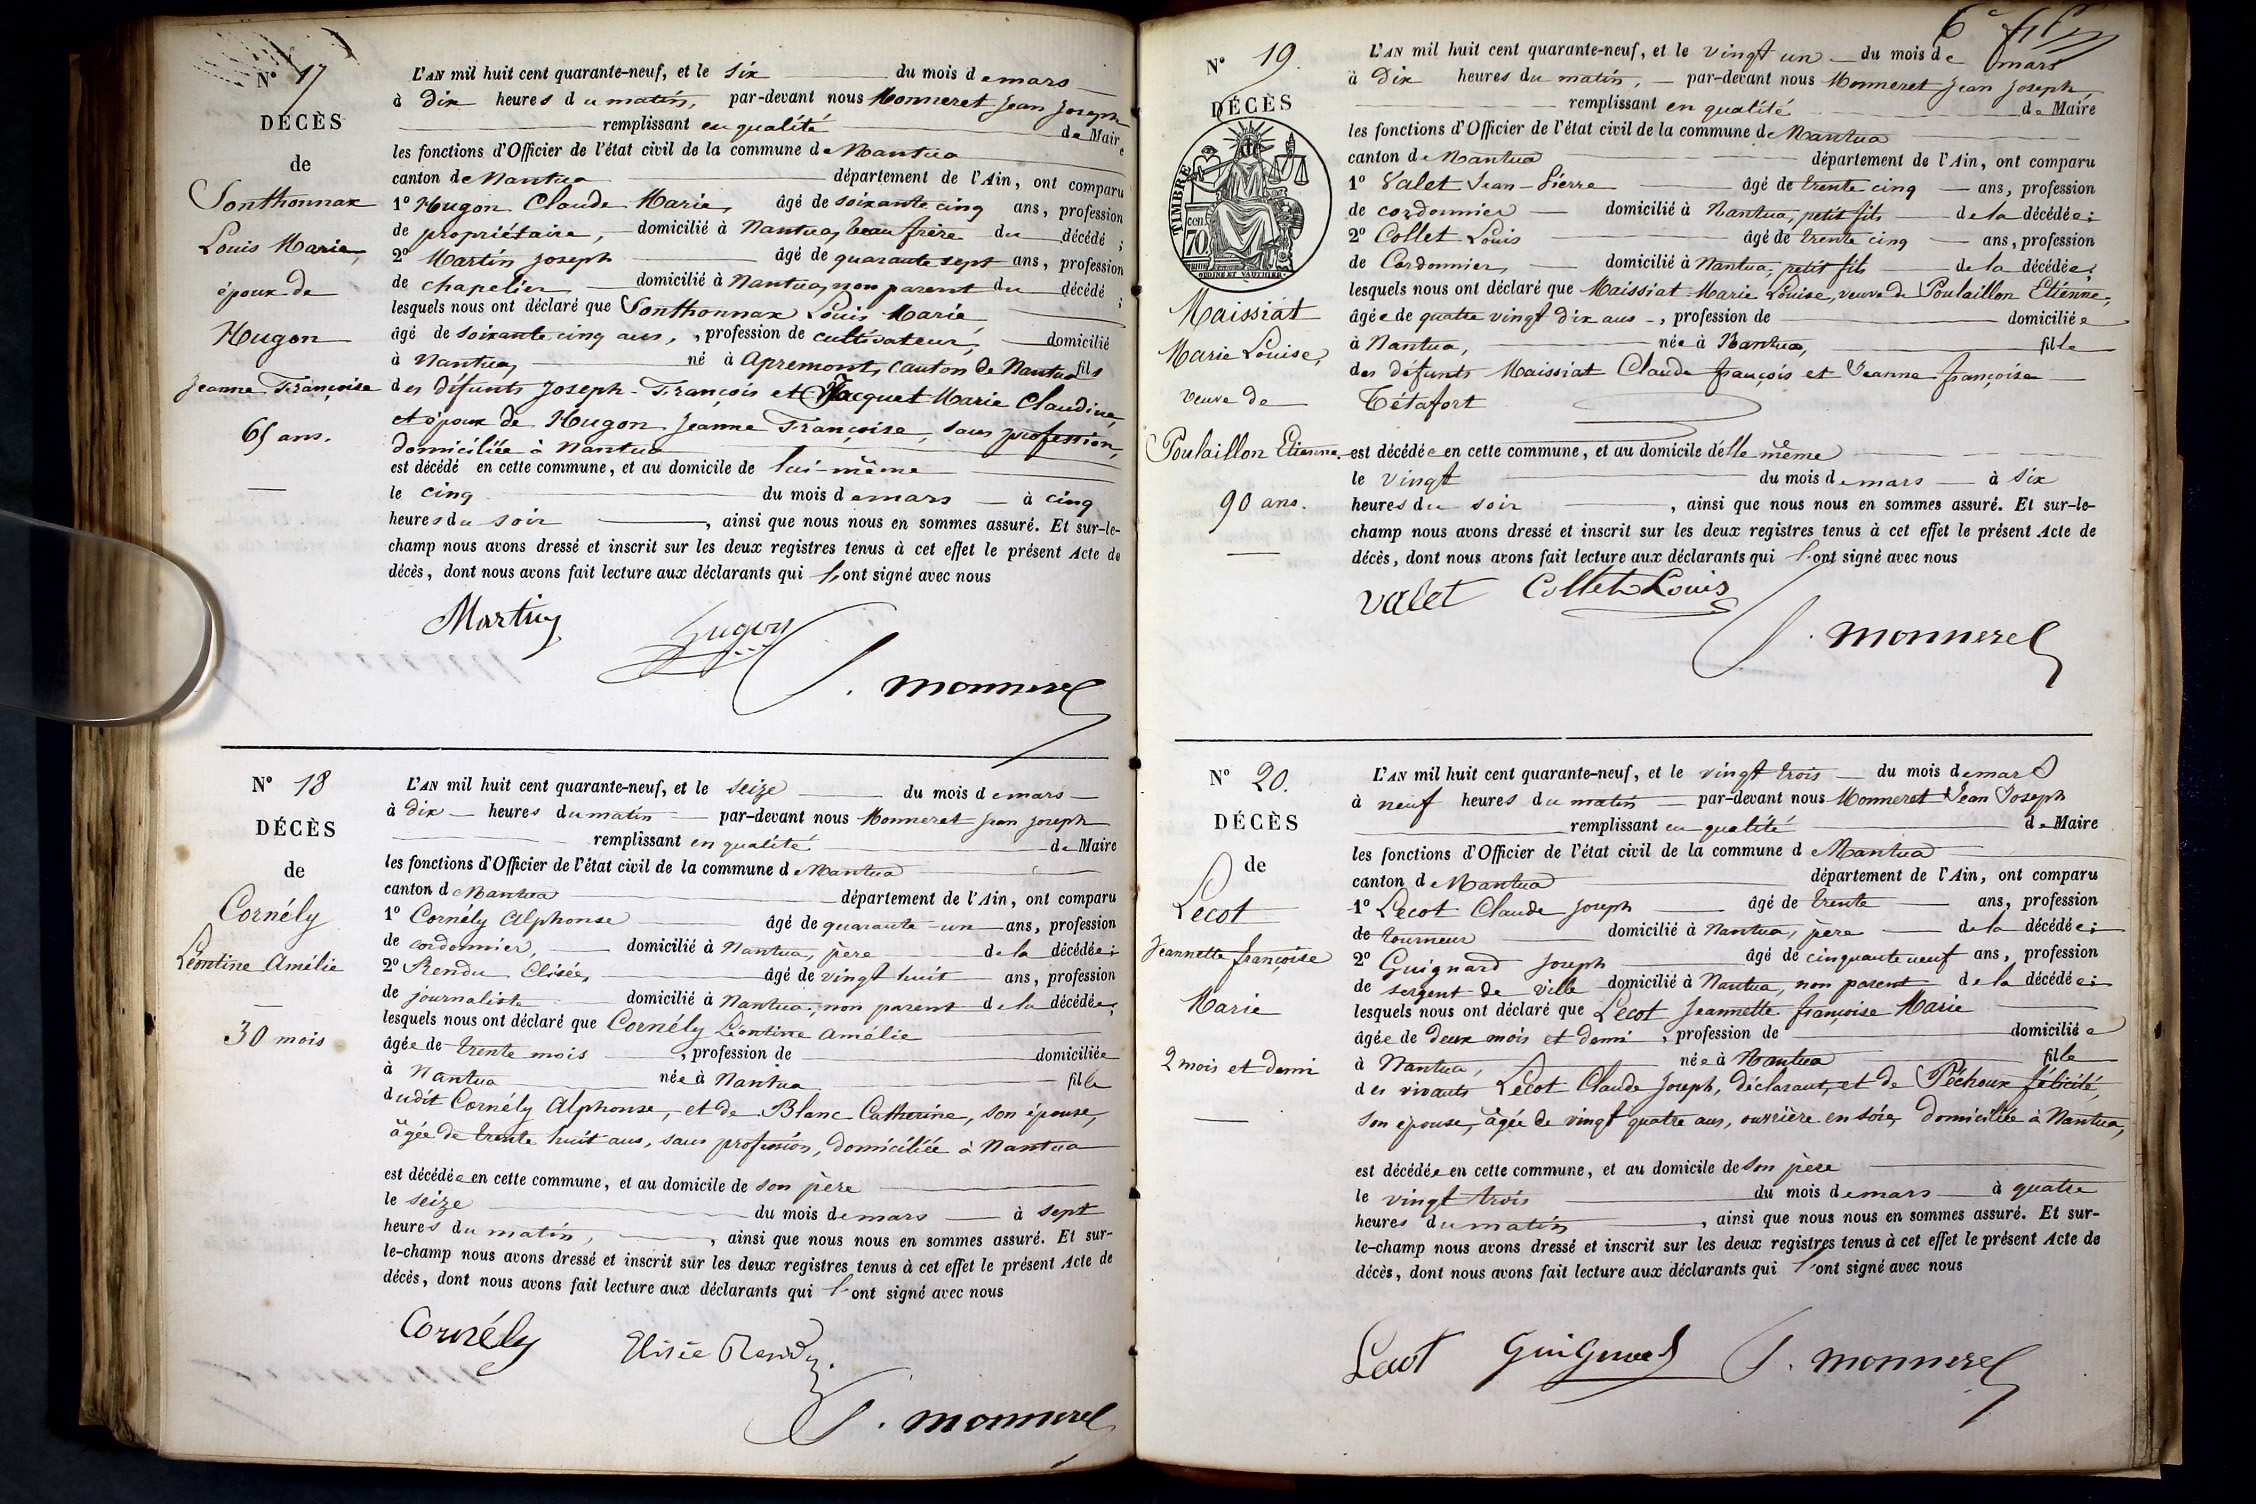 N° 17
DÉCÈS
de
Sonthonnax
Louis Marie,
époux de
Hugon
Jeanne Françoise
65 ans.
L'AN mil huit cent quarante-neuf, et le six du mois de mars
à dix heures du matin, par-devant nous Monneret Jean Joseph
remplissant en qualité de Maire
les fonctions d'Officier de l'état civil de la commune de Nantua
canton de Nantua département de l'Ain, ont comparu
1° Hugon Claude Marie, âgé de soixante cinq ans, profession
de propriétaire, domicilié à Nantua, beau frère du décédé ;
2° Martin Joseph âgé de quarante sept ans, profession
de chapelier domicilié à Nantua, non parent du décédé ;
lesquels nous ont déclaré que Sonthonnax Louis Marie
âgé de soixante cinq ans, , profession de cultivateur, domicilié
à Nantua, né à Apremont, canton de Nantua fils
des défunts Joseph-François et Jacquet Marie Claudine,
et époux de Hugon Jeanne Françoise, sans profession,
domiciliée à Nantua
est décédé en cette commune, et au domicile de lui-même
le cinq du mois de mars à cinq
heures du soir , ainsi que nous nous en sommes assuré. Et sur-le-
champ nous avons dressé et inscrit sur les deux registres tenus à cet effet le présent Acte de
décès, dont nous avons fait lecture aux déclarants qui l'ont signé avec nous
Martin Hugon
J. Monneret
N° 18
DÉCÈS
de
Cornély
Léontine Amélie
30 mois
L'AN mil huit cent quarante-neuf, et le seize du mois de mars
à dix heures du matin par-devant nous Monneret Jean Joseph
remplissant en qualité de Maire
les fonctions d'Officier de l'état civil de la commune de Nantua
canton de Nantua département de l'Ain, ont comparu
1° Cornély Alphonse âgé de quarante-un ans, profession
de cordonnier, domicilié à Nantua, père de la décédée ;
2° Rendu Elisée, âgé de vingt huit ans, profession
de journaliste domicilié à Nantua, non parent de la décédée ;
lesquels nous ont déclaré que Cornély Léontine Amélie
âgée de trente mois , profession de domiciliée
à Nantua née à Nantua fille
dudit Cornély Alphonse, et de Blanc Catherine, son épouse,
âgée de trente huit ans, sans profession, domiciliée à Nantua
est décédée en cette commune, et au domicile de son père
le seize du mois de mars à sept
heures du matin, , ainsi que nous nous en sommes assuré. Et sur-
le-champ nous avons dressé et inscrit sur les deux registres tenus à cet effet le présent Acte de
décès, dont nous avons fait lecture aux déclarants qui l'ont signé avec nous
Cornély Elisée Rendu
J. Monneret
N° 19.
DÉCÈS
de
TIMBRE
70
Maissiat
Marie Louise,
veuve de
Poulaillon Etienne.
90 ans.
L'AN mil huit cent quarante-neuf, et le vingt un du mois de mars
à dix heures du matin, par-devant nous Monneret Jean Joseph,
remplissant en qualité de Maire
les fonctions d'Officier de l'état civil de la commune de Nantua
canton de Nantua département de l'Ain, ont comparu
1° Valet Jean-Pierre âgé de trente cinq ans, profession
de cordonnier domicilié à Nantua, petit fils de la décédée ;
2° Collet Louis âgé de trente cinq ans, profession
de Cordonnier, domicilié à Nantua, petit fils de la décédée ;
lesquels nous ont déclaré que Maissiat Marie Louise, veuve de Poulaillon Etienne,
âgée de quatre vingt dix ans , profession de domiciliée
à Nantua, née à Nantua, fille
des défunts Maissiat Claude françois et Jeanne françoise
Tétafort
est décédée en cette commune, et au domicile d'elle même
le vingt du mois de mars à six
heures du soir , ainsi que nous nous en sommes assuré. Et sur-le-
champ nous avons dressé et inscrit sur les deux registres tenus à cet effet le présent Acte de
décès, dont nous avons fait lecture aux déclarants qui l'ont signé avec nous
Valet Collet Louis
J. Monneret
N° 20.
DÉCÈS
de
Lecot
Jeannette françoise
Marie
2 mois et demi
L'AN mil huit cent quarante-neuf, et le vingt trois du mois de mars
à neuf heures du matin par-devant nous Monneret Jean Joseph
remplissant en qualité de Maire
les fonctions d'Officier de l'état civil de la commune de Nantua
canton de Nantua département de l'Ain, ont comparu
1° Lecot Claude Joseph âgé de trente ans, profession
de tourneur domicilié à Nantua, père de la décédée ;
2° Guignard Joseph âgé de cinquante neuf ans, profession
de sergent de ville domicilié à Nantua, non parent de la décédée ;
lesquels nous ont déclaré que Lecot Jeannette françoise Marie
âgée de deux mois et demi , profession de domiciliée
à Nantua, née à Nantua fille
des vivants Lecot Claude Joseph, déclarant, et de Péchoux félicité,
son épouse, âgée de vingt quatre ans, ouvrière en soie, domiciliée à Nantua,
est décédée en cette commune, et au domicile de son père
le vingt trois du mois de mars à quatre
heures du matin , ainsi que nous nous en sommes assuré. Et sur-
le-champ nous avons dressé et inscrit sur les deux registres tenus à cet effet le présent Acte de
décès, dont nous avons fait lecture aux déclarants qui l'ont signé avec nous
Lecot Guignard J. Monneret